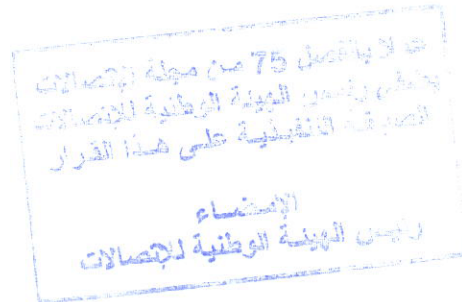 عملا بالفصل 75 من مجلة الاتصالات
يتولى رئيس الهيئة الوطنية للإتصالات
الصيغة التنفيذية على هذا القرار
الإمضاء
رئيس الهيئة الوطنية للإتصالات